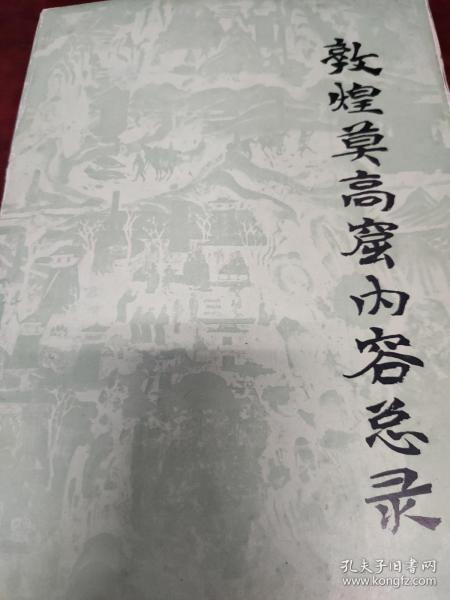 敦煌莫高窟内容总录
孔夫子旧书网
www.kongfz.com